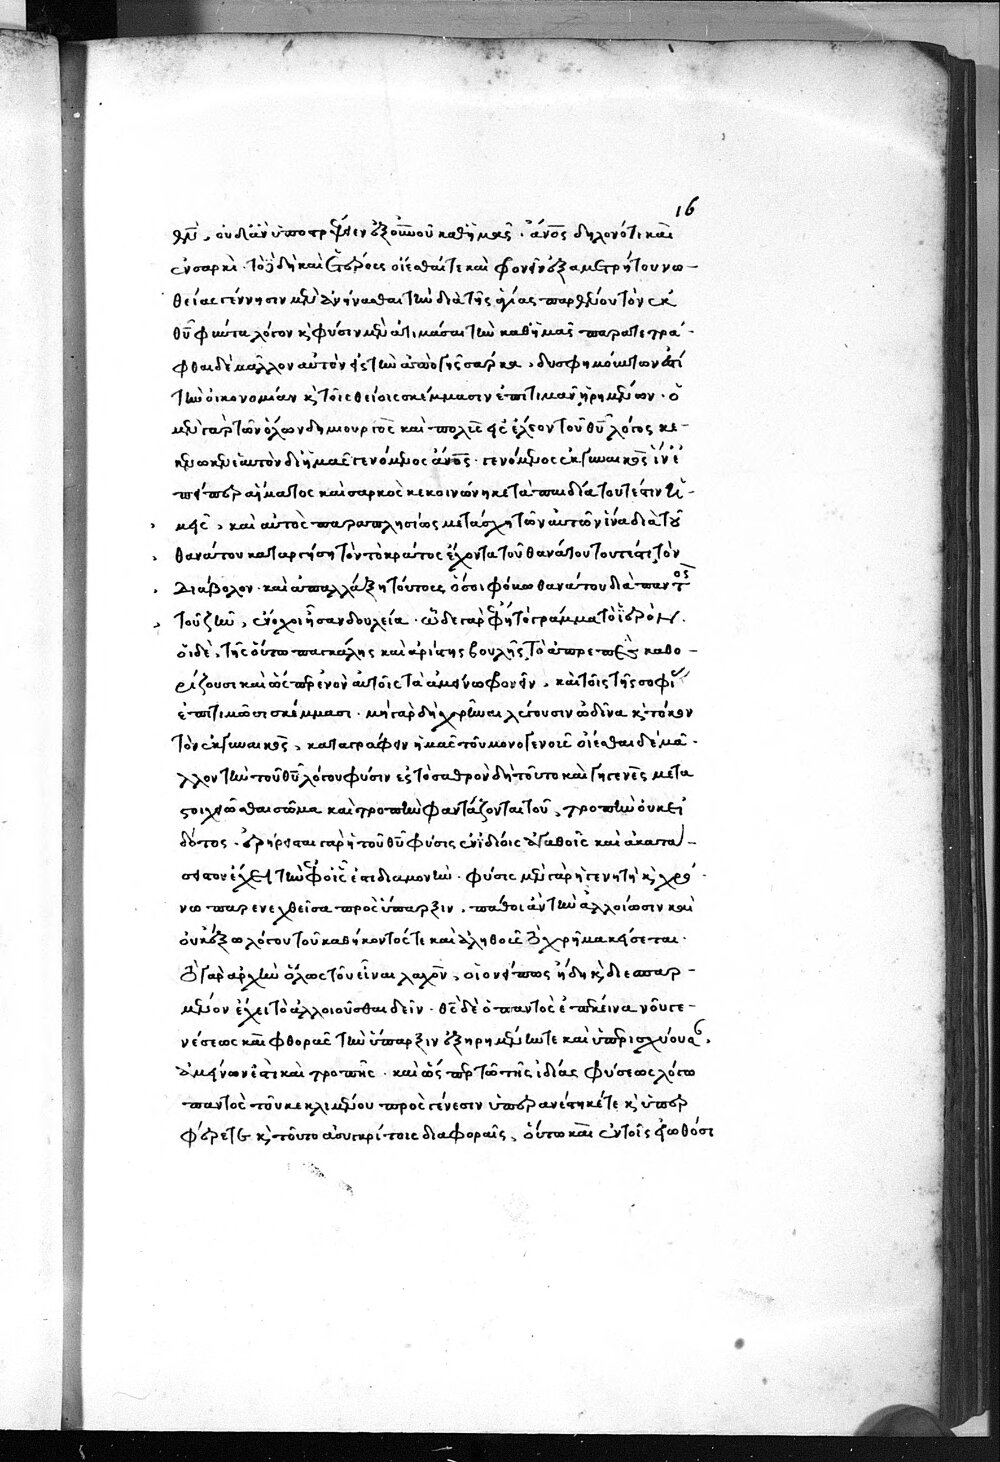 16
θυμ, οὐδ' ἂν ὑποτρέσειεν ὀξο καθ' ἡμᾶς · ἄνος δηλονότι καὶ
ἐν σαρκὶ · τὸ δὴ καὶ ἑτέροις οἴεσθαί τε καὶ φονεῖν ἐξ ἀμετρήτου νω-
θείας γέννησιν μὲν ἀνήνασθαι τὴν διὰ τῆς ἁγίας παρθένου τὸν ἐκ
θυ φωτα λόγον κ φύσιν μὲν ἀτιμάσαι τὴν καθ' ἡμᾶς παρατετρά-
φθαι δὲ μᾶλλον αὐτὸν εἰς τὴν ἀπὸ γῆς σάρκα, δυσφημούντων ἐπὶ
τὴν οἰκονομίαν κ τοῖς θείοις σκέμμασιν ἐπιτιμᾶν ᾑρημένων · ὁ
μὲν γὰρ τῶν ὅλων δημιουργὸς καὶ πολὺς εἰς ἔλεον τοῦ θυ λόγος κε-
κένωκεν ἑαυτὸν δι' ἡμᾶς γενόμενος ἄνος · γενόμενος ἐκ γυναικὸς ἵν' ἐ-
πείπερ αἵματος καὶ σαρκὸς κεκοινώνηκε τὰ παιδία τουτέστιν ἡ-
μεῖς, καὶ αὐτὸς παραπλησίως μετάσχῃ τῶν αὐτῶν ἵνα διὰ τοῦ
θανάτου καταργήσῃ τὸν τὸ κράτος ἔχοντα τοῦ θανάτου τουτέστι τὸν
διάβολον · καὶ ἀπαλλάξῃ τούτους ὅσοι φόβω θανάτου διὰ παντός
τοῦ ζῆν, ἔνοχοι ἦσαν δουλεία · ὧδε γὰρ ἔφη τὸ γράμμα τὸ ἱερόν.
οἱ δὲ, τῆς οὕτω παγκάλης καὶ ἀρίστης βουλῆς τὸ ἀπρεπὲς καθο-
ρίζουσι καὶ ὥσπερ ἐνὸν αὐτοῖς τὰ ἀμείνω φονεῖν, καὶ τοῖς τῆς σοφί
ἐπιτιμῶσι σκέμμασι · μὴ γὰρ δὴ χρῆναι λέγουσιν ὠδῖνα κ τόκον
τὸν ἐκ γυναικὸς, καταγράφειν ἡμᾶς τοῦ μονογενοῦς οἴεσθαι δὲ μᾶ-
λλον τὴν τοῦ θυ λόγου φύσιν εἰς τὸ σαθρὸν δὴ τοῦτο καὶ γηγενὲς μετα
στοιχειῶσθαι σῶμα καὶ τροπὴν φαντάζονται τοῦ, τροπὴν οὐκ εἰ
δότος · ἐρήρεισται γὰρ ἡ τοῦ θυ φύσις ἐν ἰδίοις ἀγαθοῖς καὶ ἀκατά-
σειστον ἔχει τὴν ἐφ' οἷς ἐστι διαμονήν · φύσις μὲν γὰρ ἡ γενητὴ κ χρό-
νω παρενεχθεῖσα πρὸς ὕπαρξιν, πάθοι ἂν τὴν ἀλλοίωσιν καὶ
οὐκ ἔξω λόγου τοῦ καθήκοντός τε καὶ ἀληθοῦς τὸ χρῆμα κείσεται ·
τὸ γὰρ ἀρχὴν ὅλως τοῦ εἶναι λαχὸν, οἱονείπως ἤδη κ διεσπαρ-
μένον ἔχει τὸ ἀλλοιοῦσθαι δεῖν · θς δὲ ὁ παντὸς ἐπέκεινα νοῦ γε-
νέσεως καὶ φθορᾶς τὴν ὕπαρξιν ἐξῃρημένην τε καὶ ὑπερισχύουσ,
ἀμείνων ἐστὶ καὶ τροπῆς · καὶ ὥσπερ τῶ τῆς ἰδίας φύσεως λόγω
παντὸς τοῦ κεκλιμένου πρὸς γένεσιν ὑπερανέστηκέ τε κ ὑπερ
φέρεται κ τοῦτο ἀσυγκρίτοις διαφοραῖς, οὕτω καὶ ἐν τοῖς εἰωθόσι